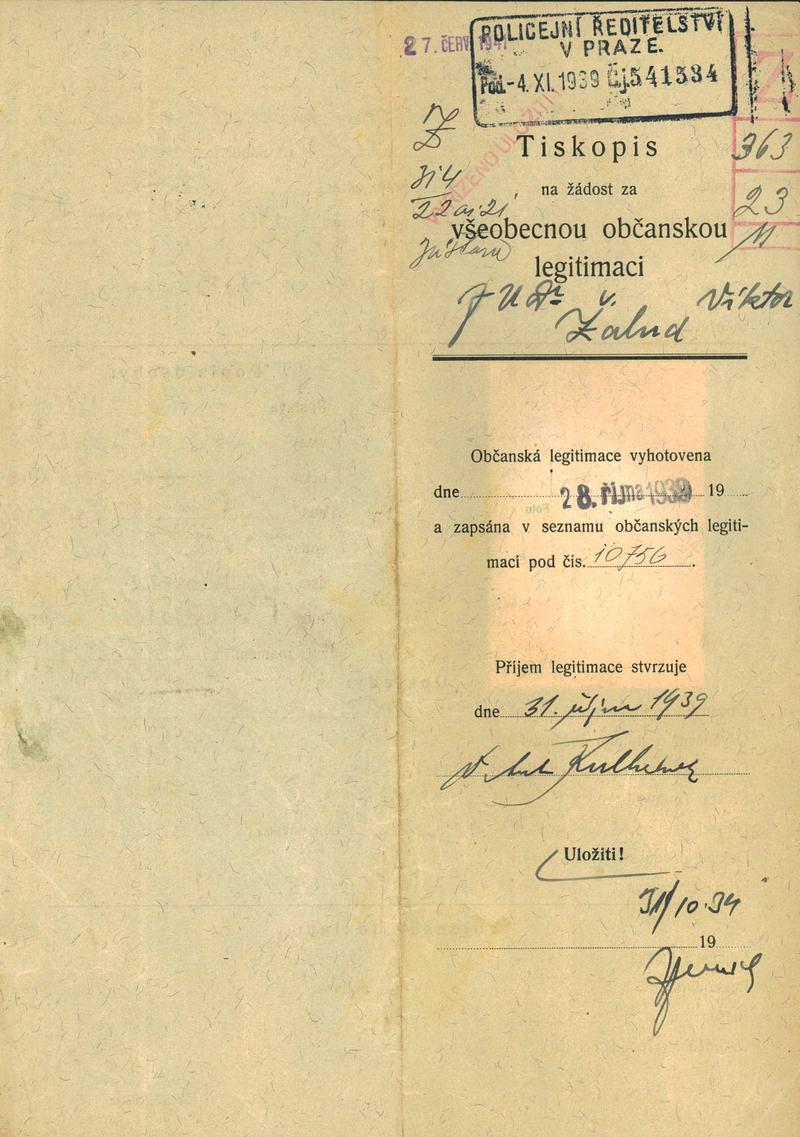 27. ČERV. 1941
POLICEJNÍ ŘEDITELSTVÍ
V PRAZE.
Pod. -4. XI. 1939 Čj. 541534
Ž
Tiskopis
363
314
na žádost za
23
všeobecnou občanskou
11
legitimaci
JUDr Viktor
Žalud
Občanská legitimace vyhotovena
dne 28. října 1939 19
a zapsána v seznamu občanských legiti-
mací pod čís. 10756.
Příjem legitimace stvrzuje
dne 31. října 1939
Uložiti!
31/10.39
19